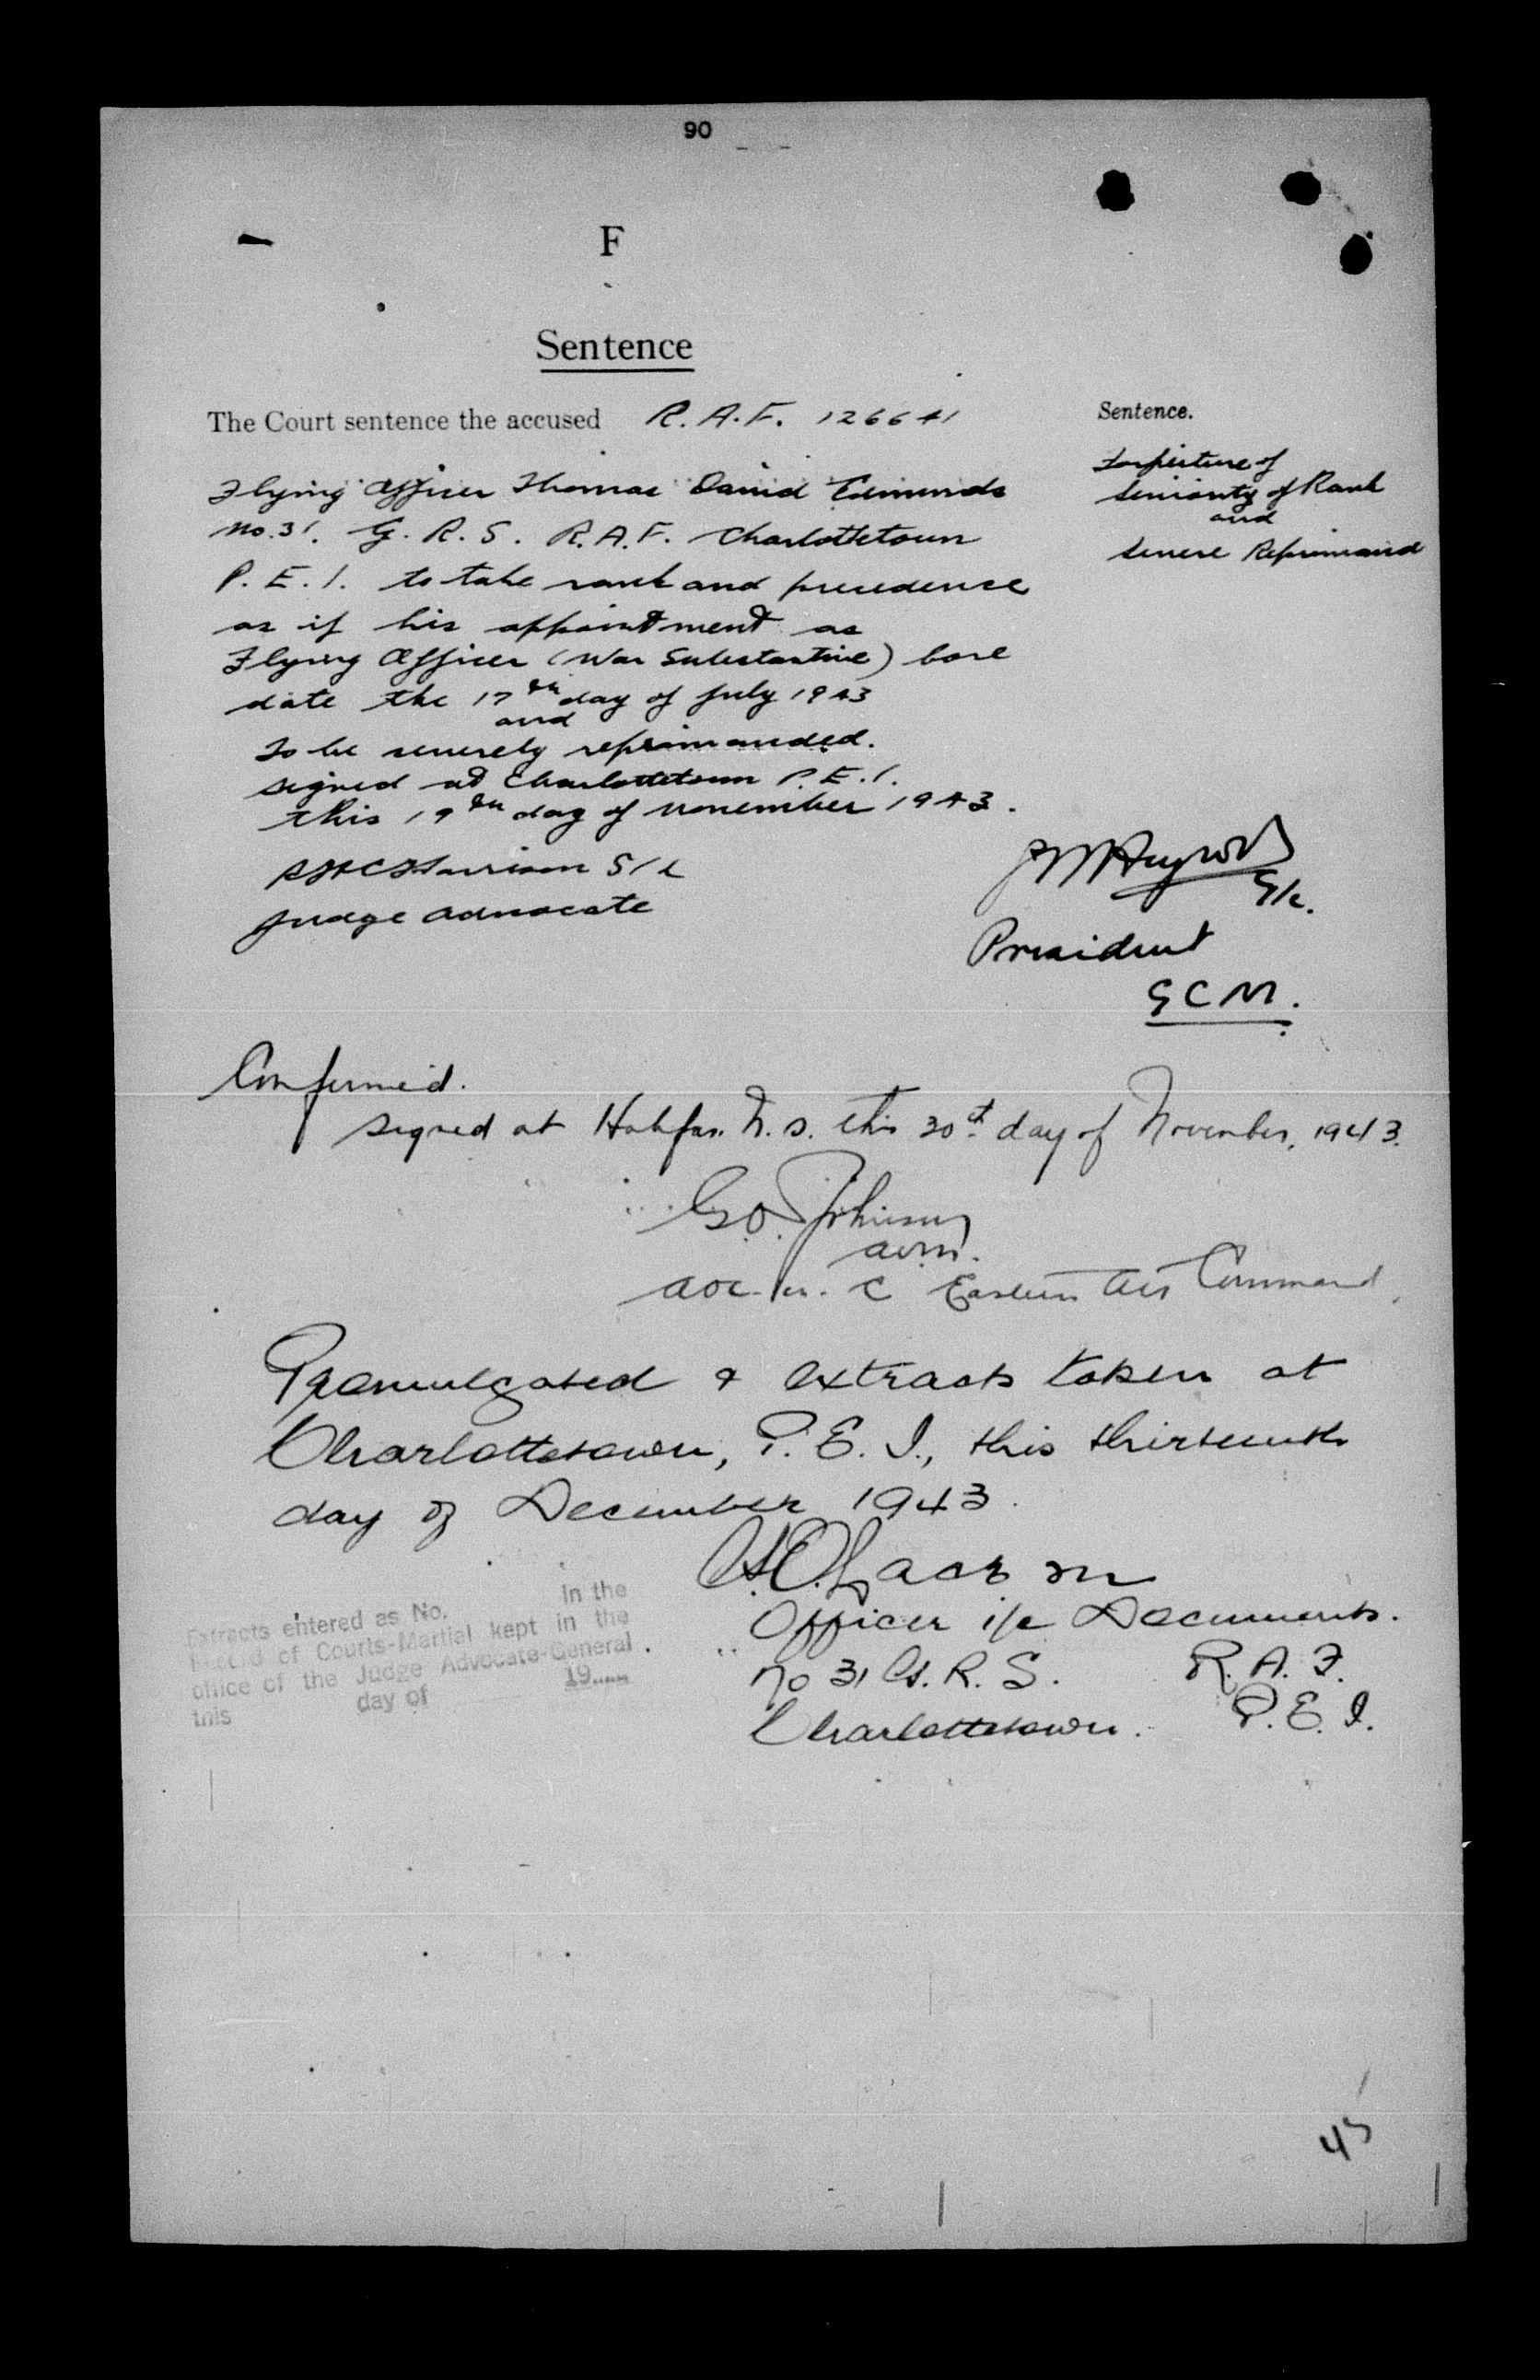 90
F
Sentence
The Court sentence the accused R.A.F. 126641
Flying Officer Thomas David Edmunds
No. 31. G. R. S. R.A.F. Charlottetown
P. E. I. to take rank and precedence
as if his appointment as
Flying Officer (War Substantive) bore
date the 17th day of July 1943
and
to be severely reprimanded.
signed at Charlottetown P.E.I.
this 19th day of November 1943.
Harrison S/L
Judge Advocate
Sentence.
Forfeiture of
Seniority of Rank
and
Severe Reprimand
G/C.
President
GCM.
Confirmed.
signed at Halifax N.S. this 30th day of November, 1943.
G.O. Johnson
AVM.
AOC-in-C Eastern Air Command
Promulgated & extracts taken at
Charlottetown, P.E.I., this thirteenth
day of December 1943.
Jackson
Officer i/c Documents.
No 31 G.R.S. R.A.F.
Charlottetown. P.E.I.
Extracts entered as No. in the
Record of Courts-Martial kept in the
office of the Judge Advocate-General.
this day of 19
45